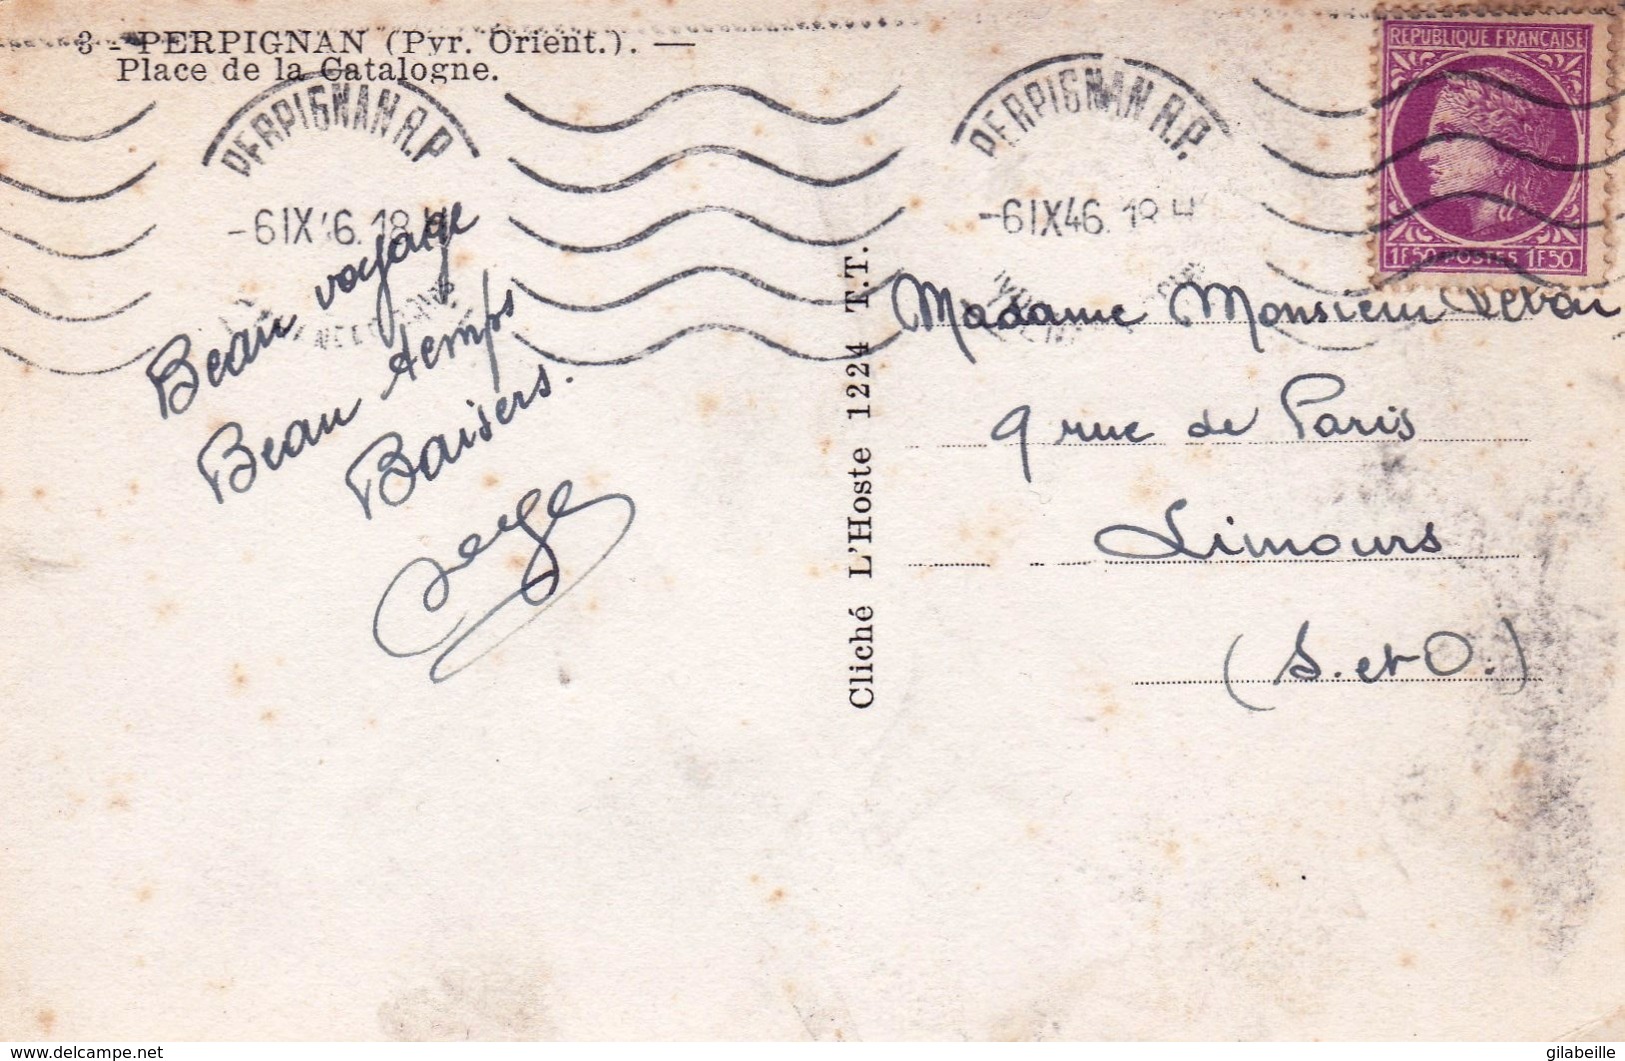 3 - PERPIGNAN (Pyr. Orient.). —
Place de la Catalogne.
PERPIGNAN R.P.
-6 IX 46. 18 H
PERPIGNAN R.P.
-6 IX 46. 18 H
REPUBLIQUE FRANÇAISE
1F50 POSTES 1F50
Beau voyage
Beau temps
Baisers.
Serge
Cliché L'Hoste 1224 T.T.
Madame Monsieur
9 rue de Paris
Limours
(S. et O.)
delcampe.net
gilabeille